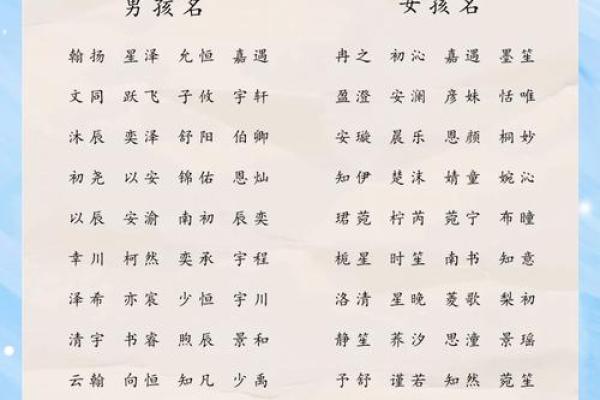 男孩名 女孩名
翰扬 星泽 允恒 嘉遇 冉之 初沁 嘉遇 墨笙
文同 跃飞 子攸 宇轩 盈澄 安澜 彦妹 恬唯
沐辰 奕泽 舒阳 伯卿 安璇 晨乐 恩颜 桐妙
初尧 以安 锦佑 恩灿 知伊 楚沫 婧童 婉沁
以辰 安渝 南初 辰奕 珺菀 柠芮 菀宁 布瞳
幸川 柯然 奕承 宇程 栀星 时笙 南书 知意
泽希 亦宸 少恒 宇川 洛清 星晚 菱歌 梨初
清宇 书睿 煦辰 景和 静笙 荞汐 思潼 景瑶
云翰 向恒 知凡 少禹 予舒 谨若 知然 菀笙